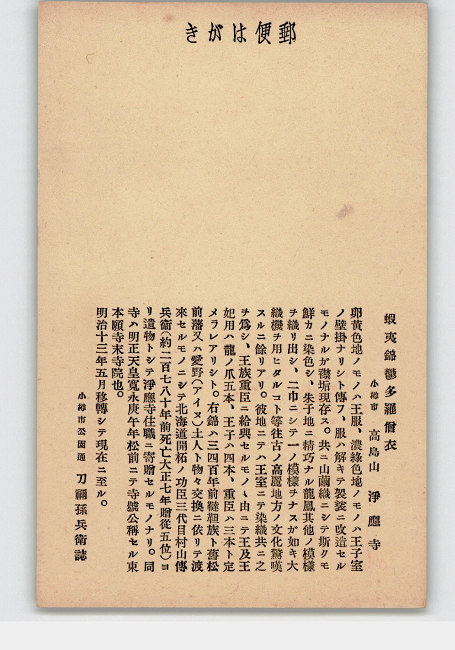 郵便はがき
蝦夷錦鬱多羅僧衣
小樽市 高島山 淨應寺
卵黄色地ノモノハ王服、濃綠色地ノモノハ王子室
ノ壁掛ナリシト傳フ、服ハ解キテ袈裟ニ改造セル
モノナルガ襟垢現存ス。共ニ山繭織ニシテ斯クモ
鮮カニ染色シ、朱子地ニ精巧ナル龍鳳其他ノ模樣
ヲ織リ出シ、二巾ニシテ一ノ模樣ヲナスガ如キ大
織機ヲ用ヒタルコト等往古ノ高麗地方ノ文化驚嘆
スルニ餘リアリ。彼地ニテハ王室ニテ染織共ニ之
ヲ爲シ、王族重臣ニ給與セルモノヽ由ニテ王及王
妃用ハ龍ノ爪五本、王子ハ四本、重臣ハ三本ト定
メラレアリシト。右錦ハ三四百年前韃靼族ト舊松
前藩又ハ愛野(アイヌ)土人ト物々交換ニ依リテ渡
來セルモノニシテ北海道開拓ノ功臣三代目村山傳
兵衞(約二百七八十年前死亡大正七年贈從五位)ヨ
リ遺物トシテ淨應寺住職ニ寄贈セルモノナリ。同
寺ハ明正天皇寬永庚午年松前ニテ寺號公稱セル東
本願寺末寺院也。
明治十三年五月移轉シテ現在ニ至ル。
小樽市公園通 刀禰孫兵衞誌